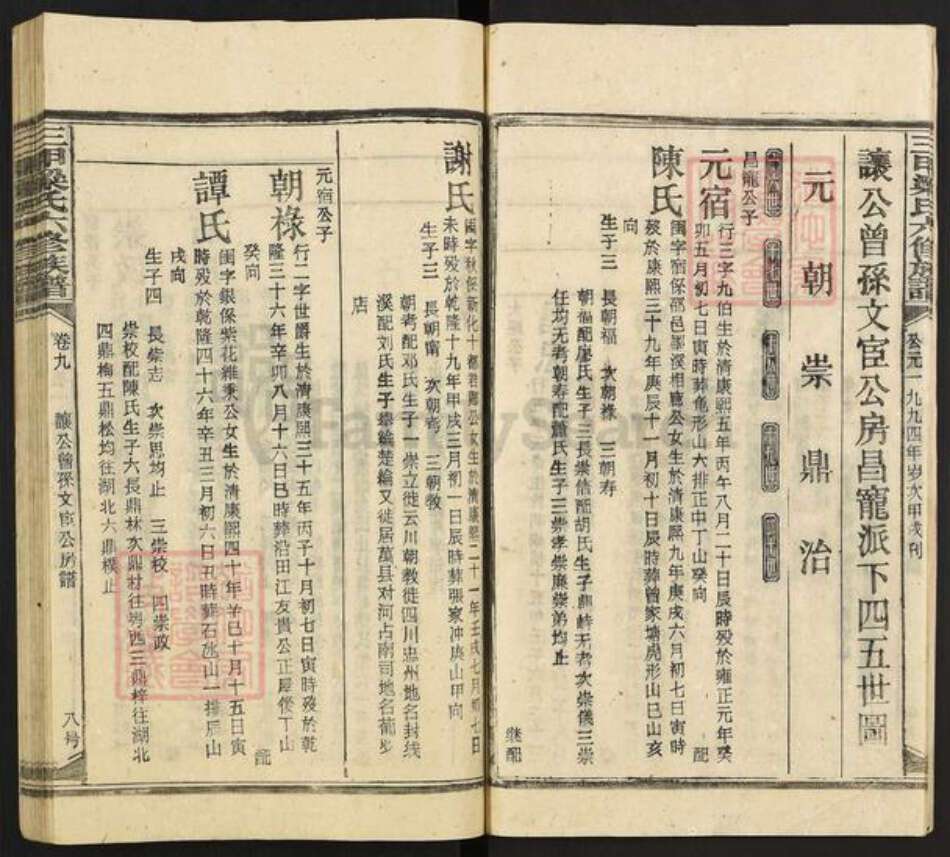 三甲梁氏六修族譜
公元一九九四年岁次甲戌刊
讓公曾孫文宦公房昌寵派下四五世圖
元 朝 崇 鼎 治
昌寵公子
元宿
行三字九伯生於清康熙五年丙午八月二十日辰時殁於雍正元年癸
卯五月初七日寅時葬龟形山六排正中丁山癸向 配
陳氏
閨字宿保邵邑墨溪相應公女生於清康熙九年庚戌六月初七日寅時
殁於康熙三十九年庚辰十一月初十日辰時葬曾家塘虎形山巳山亥
向
生子三 長朝福 次朝祿 三朝寿
朝福配廖氏生子三長崇信配胡氏生子鼎峙无考次崇儀三崇
任均无考朝寿配蕭氏生子三崇孝崇廉崇弟均止
继配
謝氏
閨字秋保新化十都君 公女生於清康熙二十一年壬戌七月初七日
未時殁於乾隆十九年甲戌三月初一日辰時葬張家冲庚山甲向
生子三 長朝甯 次朝考 三朝教
朝考配邓氏生子一崇立徙云川朝教徙四川忠州地名封线
溪配刘氏生子 綸楚綸又徙居萬县对河占南司地名葡步
店
元宿公子
朝祿
行二字世爵生於清康熙三十五年丙子十月初七日寅時殁於乾
隆三十六年辛卯八月十六日巳時葬沿田江友貴公正屋後丁山
癸向 配
譚氏
閨字銀保紫花維秉公女生於清康熙四十年辛巳十月十五日寅
時殁於乾隆四十六年辛丑三月初六日丑時葬石氹山一排辰山
戌向
生子四 長崇志 次崇思均止 三崇校 四崇政
崇校配陳氏生子六長鼎林次鼎材往 西三鼎梓往湖北
四鼎梅五鼎松均往湖北六鼎樸止
三甲梁氏六修族譜
卷九
讓公曾孫文宦公房譜
八号